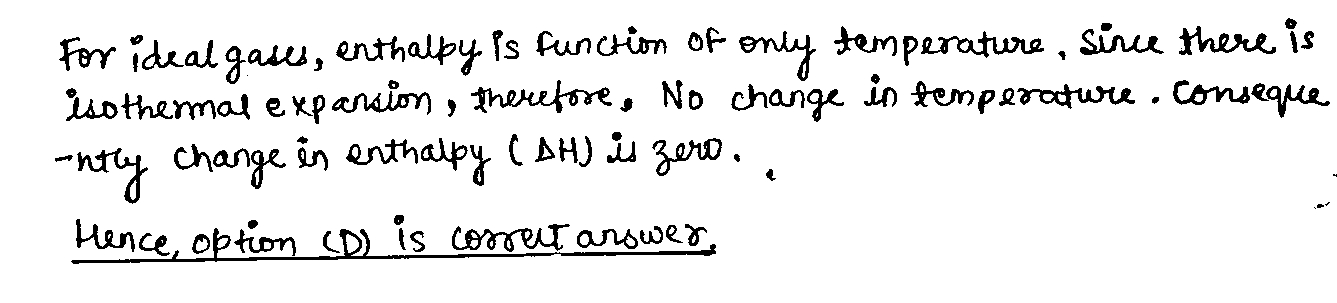 For ideal gases, enthalpy is function of only temperature, Since there is
isothermal expansion, therefore, No change in temperature. Conseque
-ntly change in enthalpy (ΔH) is zero.
Hence, option (D) is correct answer.